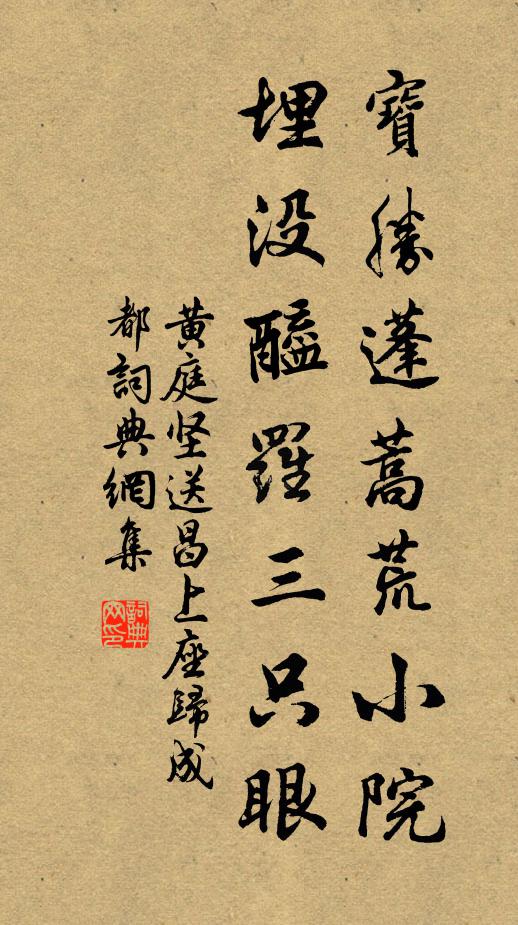 寶勝蓬蒿荒小院
埋没醯羅三只眼
黄庭坚送昌上座歸成
都詞典網集
詞典
网印